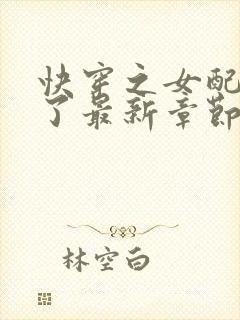 快穿之女配
了最新章节
林空白